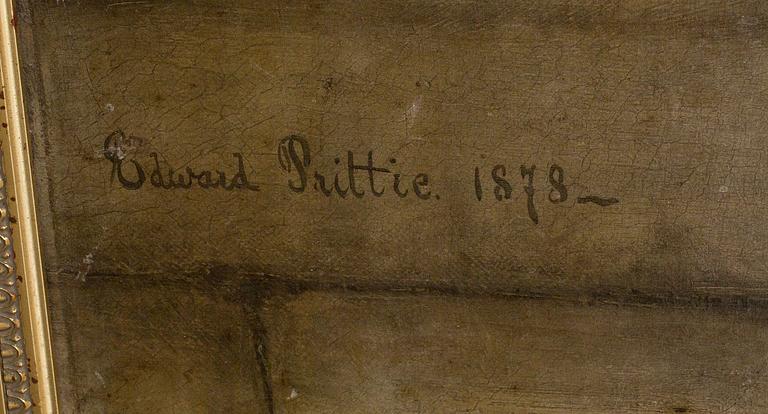 Edward Prittie. 1878_